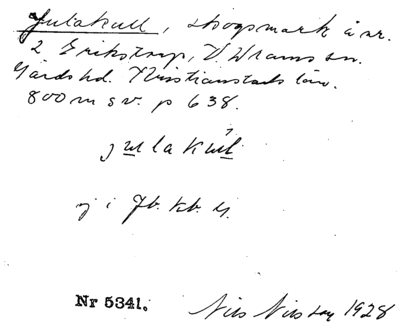 Julakull, skogsmark å nr.
2 Erikstorp, V. Wrams sn.
Gärds hd. Kristianstads län.
800 m s v. p 638.
julakul
ej i Jb. kb. G.
Nr 5341.
Nils Nilsson 1928